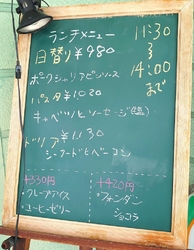 ランチメニュー
日替り ¥980
ポークシャリアピンソース
パスタ ¥1,020
キャベツとソーセージ(塩)
ドリア ¥1,130
シーフードとベーコン
11:30
〜
14:00
まで
+330円
・クレープアイス
・コーヒーゼリー
+420円
・フォンダン
ショコラ